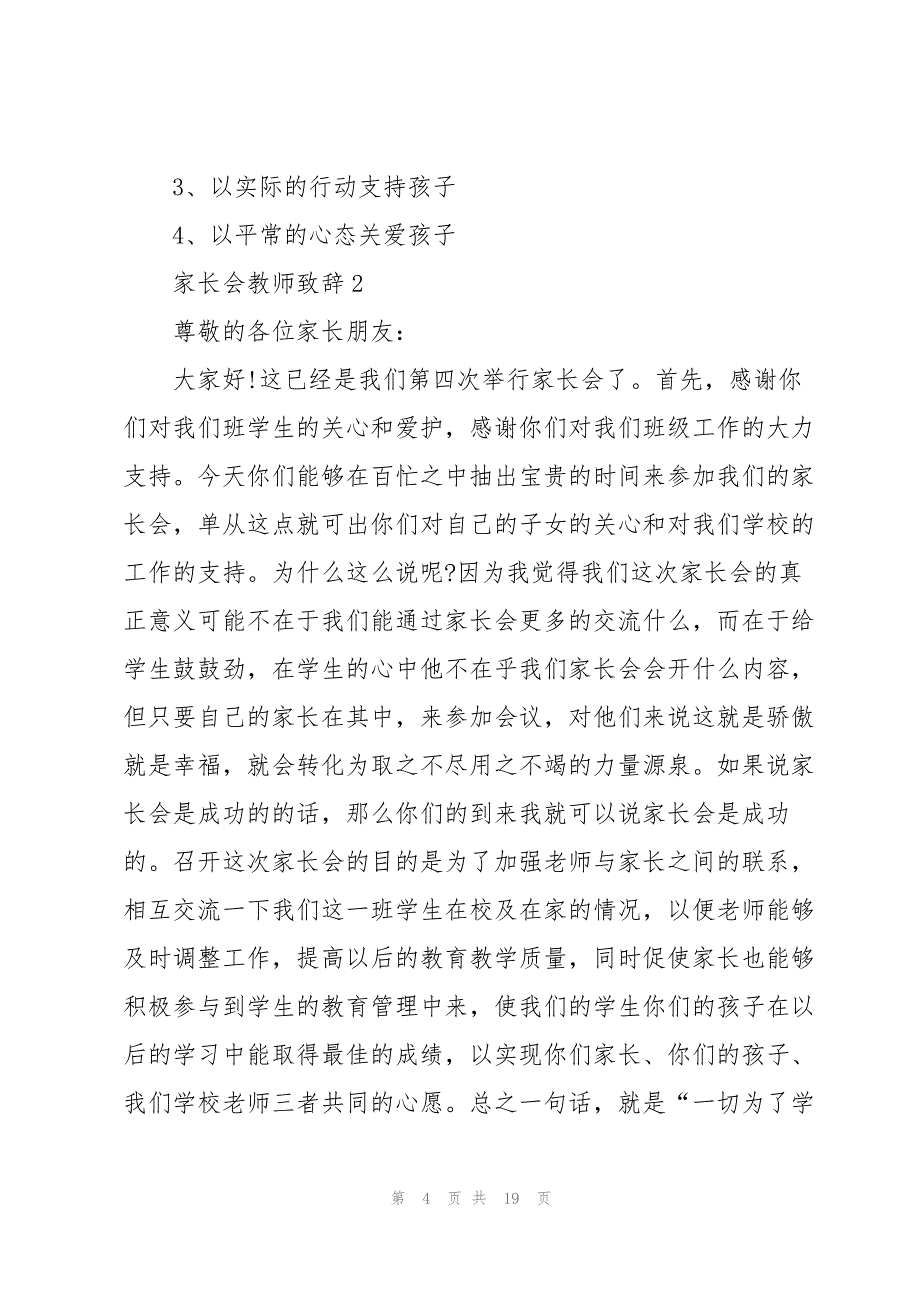 3、以实际的行动支持孩子
4、以平常的心态关爱孩子
家长会教师致辞2
尊敬的各位家长朋友：
大家好!这已经是我们第四次举行家长会了。首先，感谢你
们对我们班学生的关心和爱护，感谢你们对我们班级工作的大力
支持。今天你们能够在百忙之中抽出宝贵的时间来参加我们的家
长会，单从这点就可出你们对自己的子女的关心和对我们学校的
工作的支持。为什么这么说呢?因为我觉得我们这次家长会的真
正意义可能不在于我们能通过家长会更多的交流什么，而在于给
学生鼓鼓劲，在学生的心中他不在乎我们家长会会开什么内容，
但只要自己的家长在其中，来参加会议，对他们来说这就是骄傲
就是幸福，就会转化为取之不尽用之不竭的力量源泉。如果说家
长会是成功的的话，那么你们的到来我就可以说家长会是成功
的。召开这次家长会的目的是为了加强老师与家长之间的联系，
相互交流一下我们这一班学生在校及在家的情况，以便老师能够
及时调整工作，提高以后的教育教学质量，同时促使家长也能够
积极参与到学生的教育管理中来，使我们的学生你们的孩子在以
后的学习中能取得最佳的成绩，以实现你们家长、你们的孩子、
我们学校老师三者共同的心愿。总之一句话，就是“一切为了学
第 4 页 共 19 页